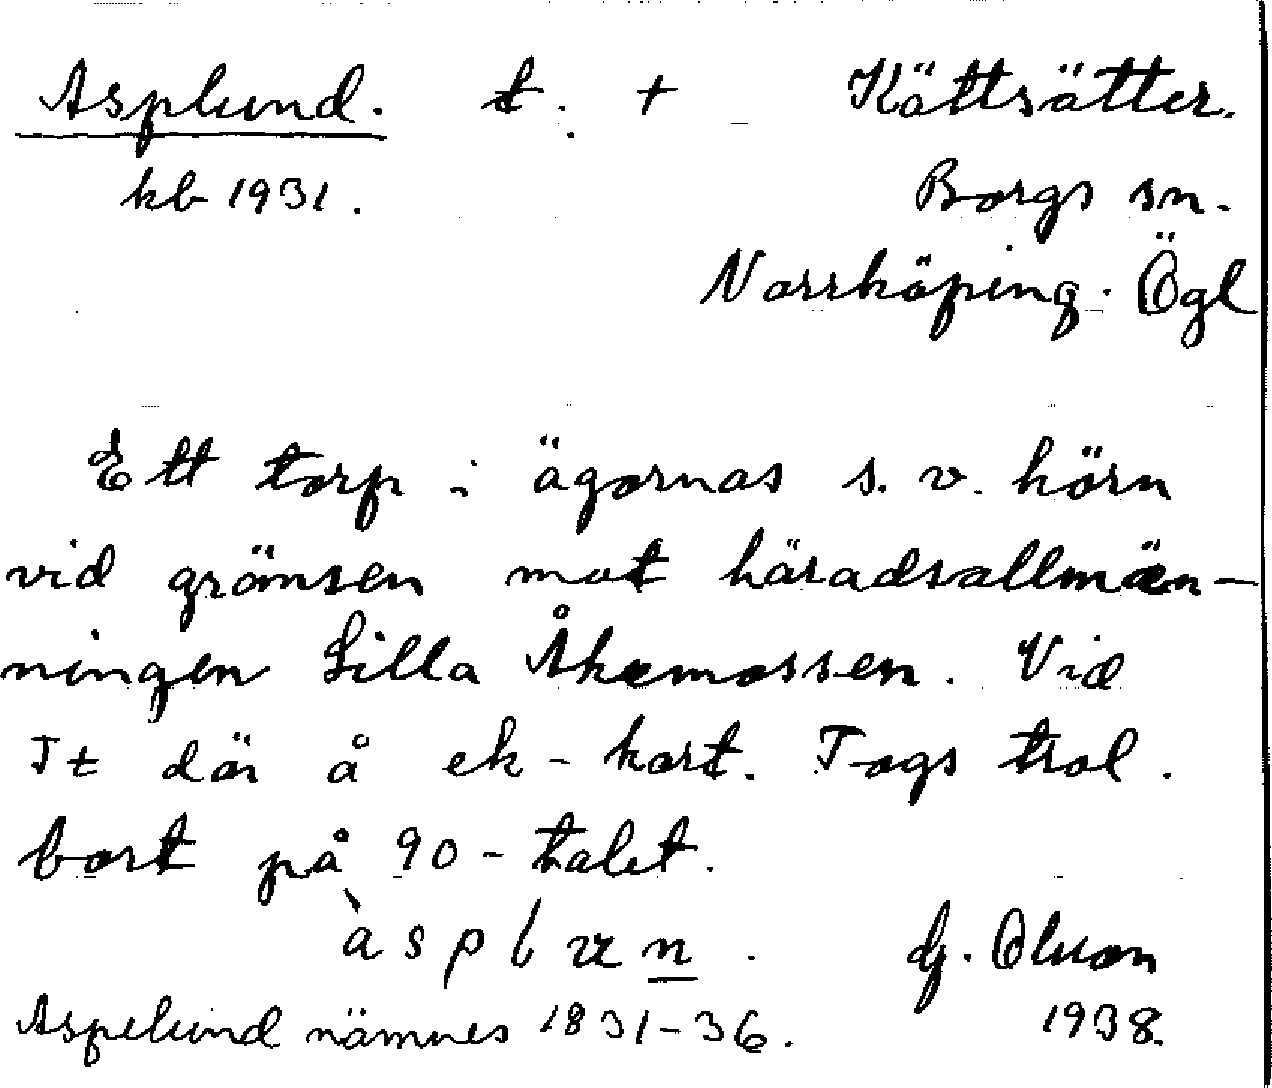 Asplund. t. + Kättsätter.
kb 1931. Borgs sn.
Norrköping. Ögl
Ett torp i ägornas s. v. hörn
vid gränsen mot häradsallmän-
ningen Lilla Åkemossen. Vid
It där å ek-kart. Togs trol.
bort på 90-talet.
àsplun. G. Olsson
Aspelund nämnes 1831-36. 1938.